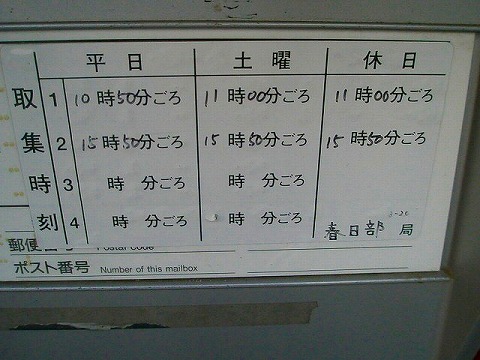 平日 土曜 休日
取集時刻
1 10時50分ごろ 11時00分ごろ 11時00分ごろ
2 15時50分ごろ 15時50分ごろ 15時50分ごろ
3 時 分ごろ 時 分ごろ
4 時 分ごろ 時 分ごろ
春日部 局
Postal code
ポスト番号 Number of this mailbox